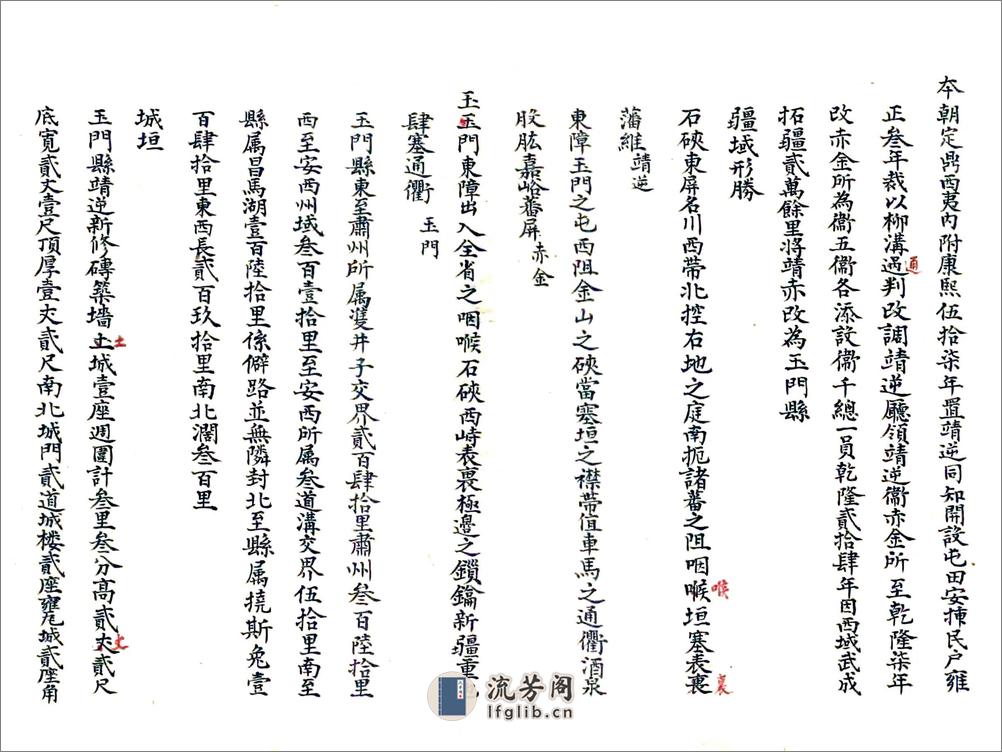 本朝定鼎西夷內附康熙伍拾柒年置靖逆同知開設屯田安揀民户雍
正叁年裁以柳溝通判改調靖逆廳領靖逆衞赤金所至乾隆柒年
改赤金所為衞五衞各添設衞千總一員乾隆貳拾肆年因西域武成
拓疆貳萬餘里將靖赤改為玉門縣
疆域形勝
石硤東屏名川西帶北控右地之庭南扼諸蕃之阻咽喉垣塞表裏
藩維靖逆
東障玉門之屯西阻金山之硤當塞垣之襟帶值車馬之通衢酒泉
股肱嘉峪蕃屏赤金
玉玉門東障出入全省之咽喉石硤西峙表裏極邊之鎖鑰新疆重
肆塞通衢 玉門
玉門縣東至肅州所属䨇井子交界貳百肆拾里肅州叁百陸拾里
西至安西州域叁百壹拾里至安西所属叁道溝交界伍拾里南至
縣属昌馬湖壹百陸拾里係僻路並無隣封北至縣属撓斯兔壹
百肆拾里東西長貳百玖拾里南北濶叁百里
城垣
玉門縣靖逆新修磚築墻土城壹座週圍計叁里叁分高貳丈貳尺
底寬貳丈壹尺頂厚壹丈貳尺南北城門貳道城楼貳座甕尼城貳座角
通
喉
裏
土
丈
流芳阁
lfglib.cn